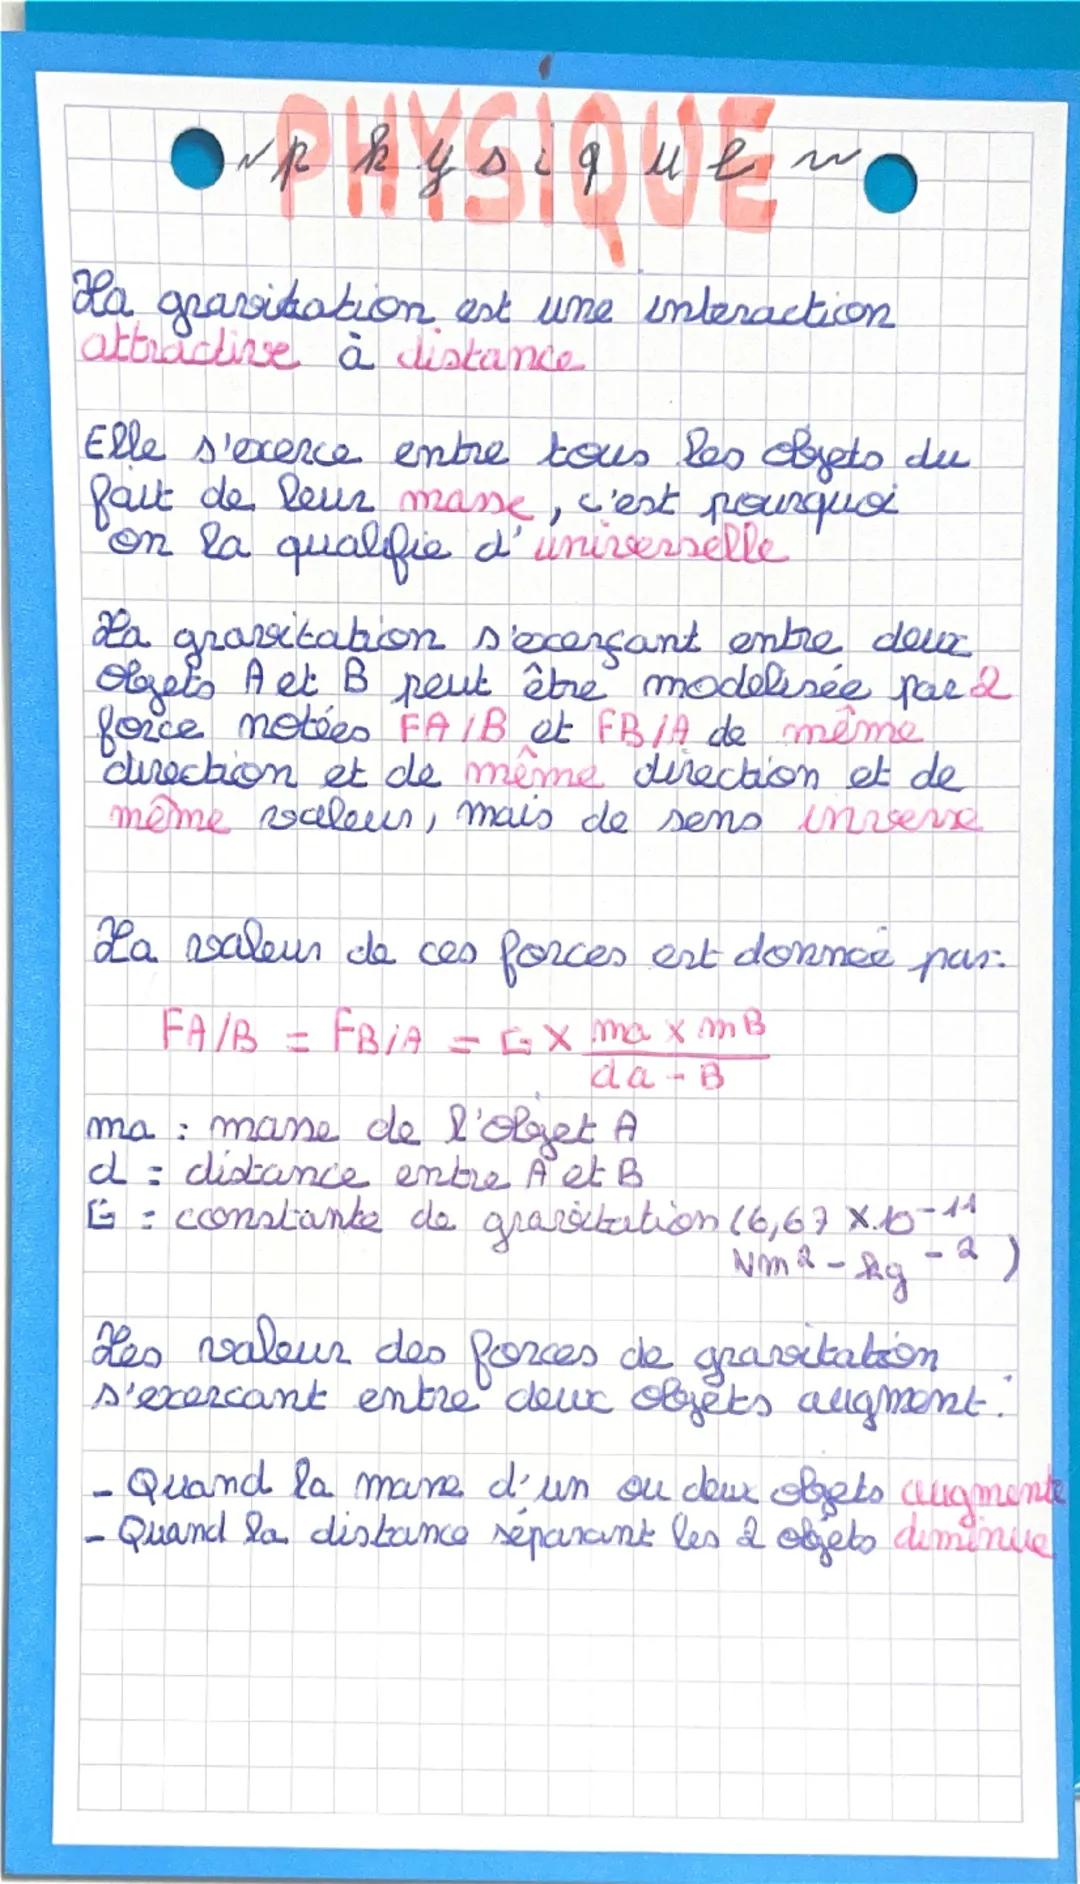 PHYSIQUE
~ physique ~
La gravitation est une interaction
attractive à distance
Elle s'exerce entre tous les objets du
fait de leur masse, c'est pourquoi
on la qualifie d'universelle
La gravitation s'exerçant entre deux
objets A et B peut être modelisée par 2
force notées FA/B et FB/A de même
direction et de même direction et de
même valeur, mais de sens inverse
La valeur de ces forces est donnée par:
FA/B = FB/A = G X ma x mB
da - B
ma : masse de l'objet A
d = distance entre A et B
G : cconstante de gravitation (6,67 X.10-11
Nm2 - kg -2)
Les valeur des forces de gravitation
s'exercant entre deux objets augment:
- Quand la masse d'un ou deux objets augmente
- Quand la distance séparant les 2 objets diminue